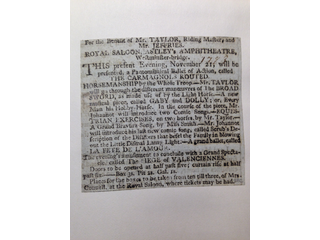 For the Benefit of Mr. TAYLOR, Riding Master, and
Mr. JEFFRIES.
ROYAL SALOON, ASTLEY's AMPHITHEATRE,
Westminster-bridge.
THIS present Evening, November 21, will be
presented, a Pantomimical Ballet of Action, called
THE CARMAGNOLS ROUTED.
HORSEMANSHIP by the whole Troop.—Mr. TAYLOR
will go through the different manœuvres of the BROAD
SWORD, as made use of by the Light Horse.—A new
musical piece, called GABY and DOLLY; or, Every
Man his Hobby-Horse. In the course of the piece, Mr.
Johannot will introduce two Comic Songs.—EQUES-
TRIAN EXERCISES, on two horses, by Mr. Taylor.—
A Grand Bravura Song, by Miss Smith.—Mr. Johannot
will introduce his last new comic song, called Sarah's De-
scription of the Disasters that befell the Family in blowing
out the Little Dismal Lamp Light.—A grand ballet, called
LA FETE DE L'AMOUR.
The evening's amusement to conclude with a Grand Specta-
cle, called The SIEGE of VALENCIENNES.
Doors to be opened at half past five; curtain rise at half
past six.—Box 3s. Pit 2s. Gal. 1s.
Places for the boxes to be taken from ten till three, of Mrs.
at the Royal Saloon, where tickets may be had.